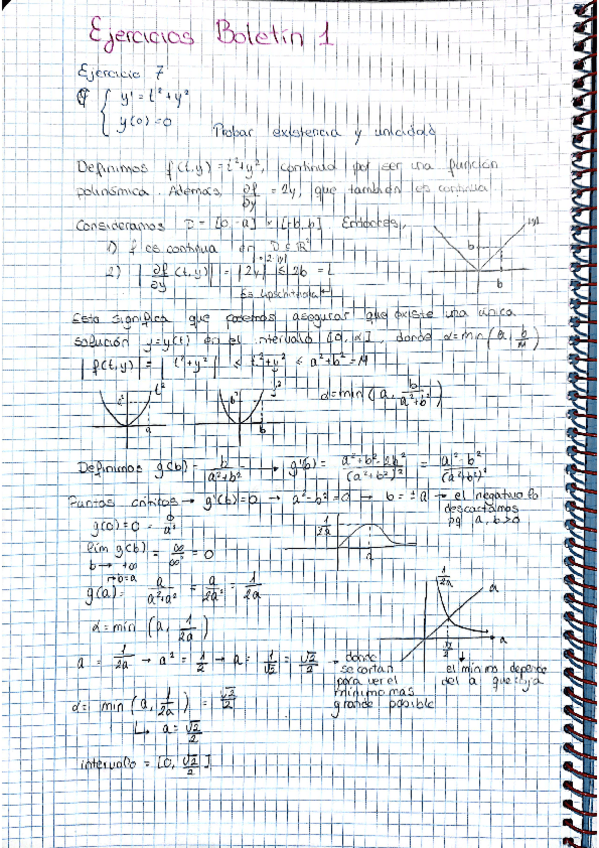 Ejercicios Boletín 1
Ejercicio 7
{ y' = t² + y²
y(0) = 0
Probar existencia y unicidad
Definimos f(t,y) = t²+y², continua por ser una función
polinómica. Además, ∂f/∂y = 2y, que también es continua
Consideramos D = [0, a] × [-b, b]. Entonces,
1) f es continua en D ⊂ ℝ²
= 2·|y|
2) | ∂f/∂y (t,y) | = |2y| ≤ 2b = L
Es lipschitziana
|y|
b
b
Esto significa que podemos asegurar que existe una única
solución y=y(t) en el intervalo [0, α], donde α = min (a, b/M)
| f(t,y) | = | t²+y² | ≤ t²+y² ≤ a²+b² = M
t²
t²
a
b²
y²
b
α = min (a, b/(a²+b²))
Definimos g(b) = b/(a²+b²) → g'(b) = (a²+b²-2b²)/(a²+b²)² = (a²-b²)/(a²+b²)²
Puntos críticos → g'(b)=0 → a²-b²=0 → b = ± a → el negativo lo
descartamos
pq a, b>0
g(0) = 0 = 0/a²
lim g(b) = ∞/∞² = 0
b → +∞
1/2a
a
→ b=a
g(a) = a/(a²+a²) = a/2a² = 1/2a
α = min (a, 1/2a)
1/2a
a
a
√2/2
a = 1/2a → a² = 1/2 → a = 1/√2 = √2/2 → donde
se cortan
para ver el
mínimo más
grande posible
el mínimo depende
del a que coja
α = min (a, 1/2a) = √2/2
↳ a = √2/2
intervalo = [0, √2/2]